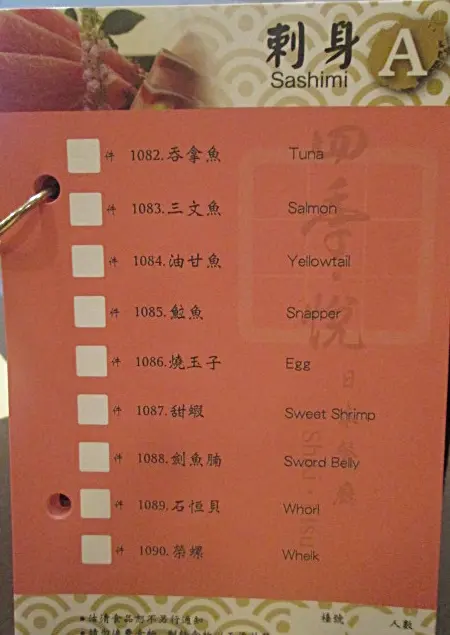 刺身 A
Sashimi
件 1082. 吞拿魚 Tuna
件 1083. 三文魚 Salmon
件 1084. 油甘魚 Yellowtail
件 1085. 䱽魚 Snapper
件 1086. 燒玉子 Egg
件 1087. 甜蝦 Sweet Shrimp
件 1088. 劍魚腩 Sword Belly
件 1089. 石恒貝 Whorl
件 1090. 榮螺 Whelk
四季悅
日本餐廳
檯號 人數